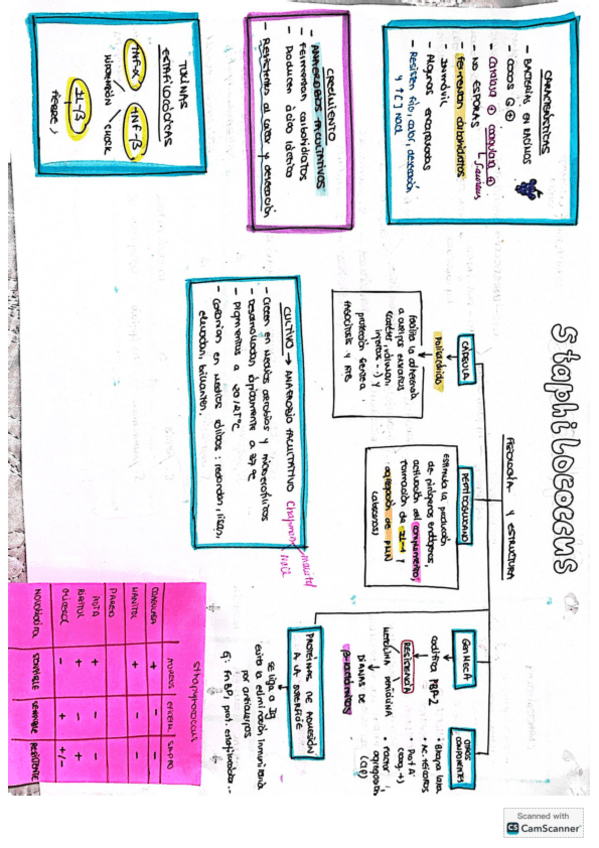 Staphilococcus
FISIOLOGÍA Y ESTRUCTURA
CARACTERÍSTICAS
- BACTERIAS EN RACIMOS
- COCOS G ⊕
- Catalasa ⊕ coagulasa ⊕
↳ S. aureus
- NO ESPORAS
- Fermentan carbohidratos
- Inmóvil
- Algunos encapsulados
- Resisten frío, calor, desecación
y ↑ [ ] NaCl
CRECIMIENTO
- ANAEROBIOS FACULTATIVOS
- Fermentan carbohidratos
- Producen ácido láctico
- Resistentes al calor y desecación
TOXINAS
ESTAFILOCÓCICAS
TNF-α
TNF-β
HIPOTENSIÓN
SHOCK
IL-1β
FIEBRE
CÁPSULA
Polisacárido
facilita la adherencia
a cuerpos extraños
y
protección frente a
FAGOCITOSIS Y
PEPTIDOGLICANO
Estimula la producción
de pirógenos endógenos,
activación del complemento,
formación de IL-1 y
agregación de PMN
Gen MecA
codifica PBP-2
RESISTENCIA
METICILINA PENICILINA
DIANAS DE
OTROS
COMPONENTES
• Ac. teicoicos
• Prot A
(coag. +)
• Factor
agregación
PROTEÍNAS DE ADHESIÓN
A LA SUPERFICIE
se liga a Ig
evita la eliminación inmunitaria
por anticuerpos
Ej: FnBP, prot.
CULTIVO → ANAEROBIO FACULTATIVO
Chapman
manitol
NaCl
- Crecen en medios aerobios y microaerofílicos
- Desarrollados típicamente a 37 ºC
- Pigmentos a 20/25ºC
- Colonias en medios sólidos: redondas, lisas,
elevadas, brillantes.
Staphylococcus
AUREUS EPIDERM SAPRO
COAGULASA + - -
MANITOL + - -
PIGMENTO
PROT A + - -
RIBITOL + - +
GLICEROL - + +/-
NOVOBIOCINA SENSIBLE SENSIBLE RESISTENTE
Scanned with
CS CamScanner